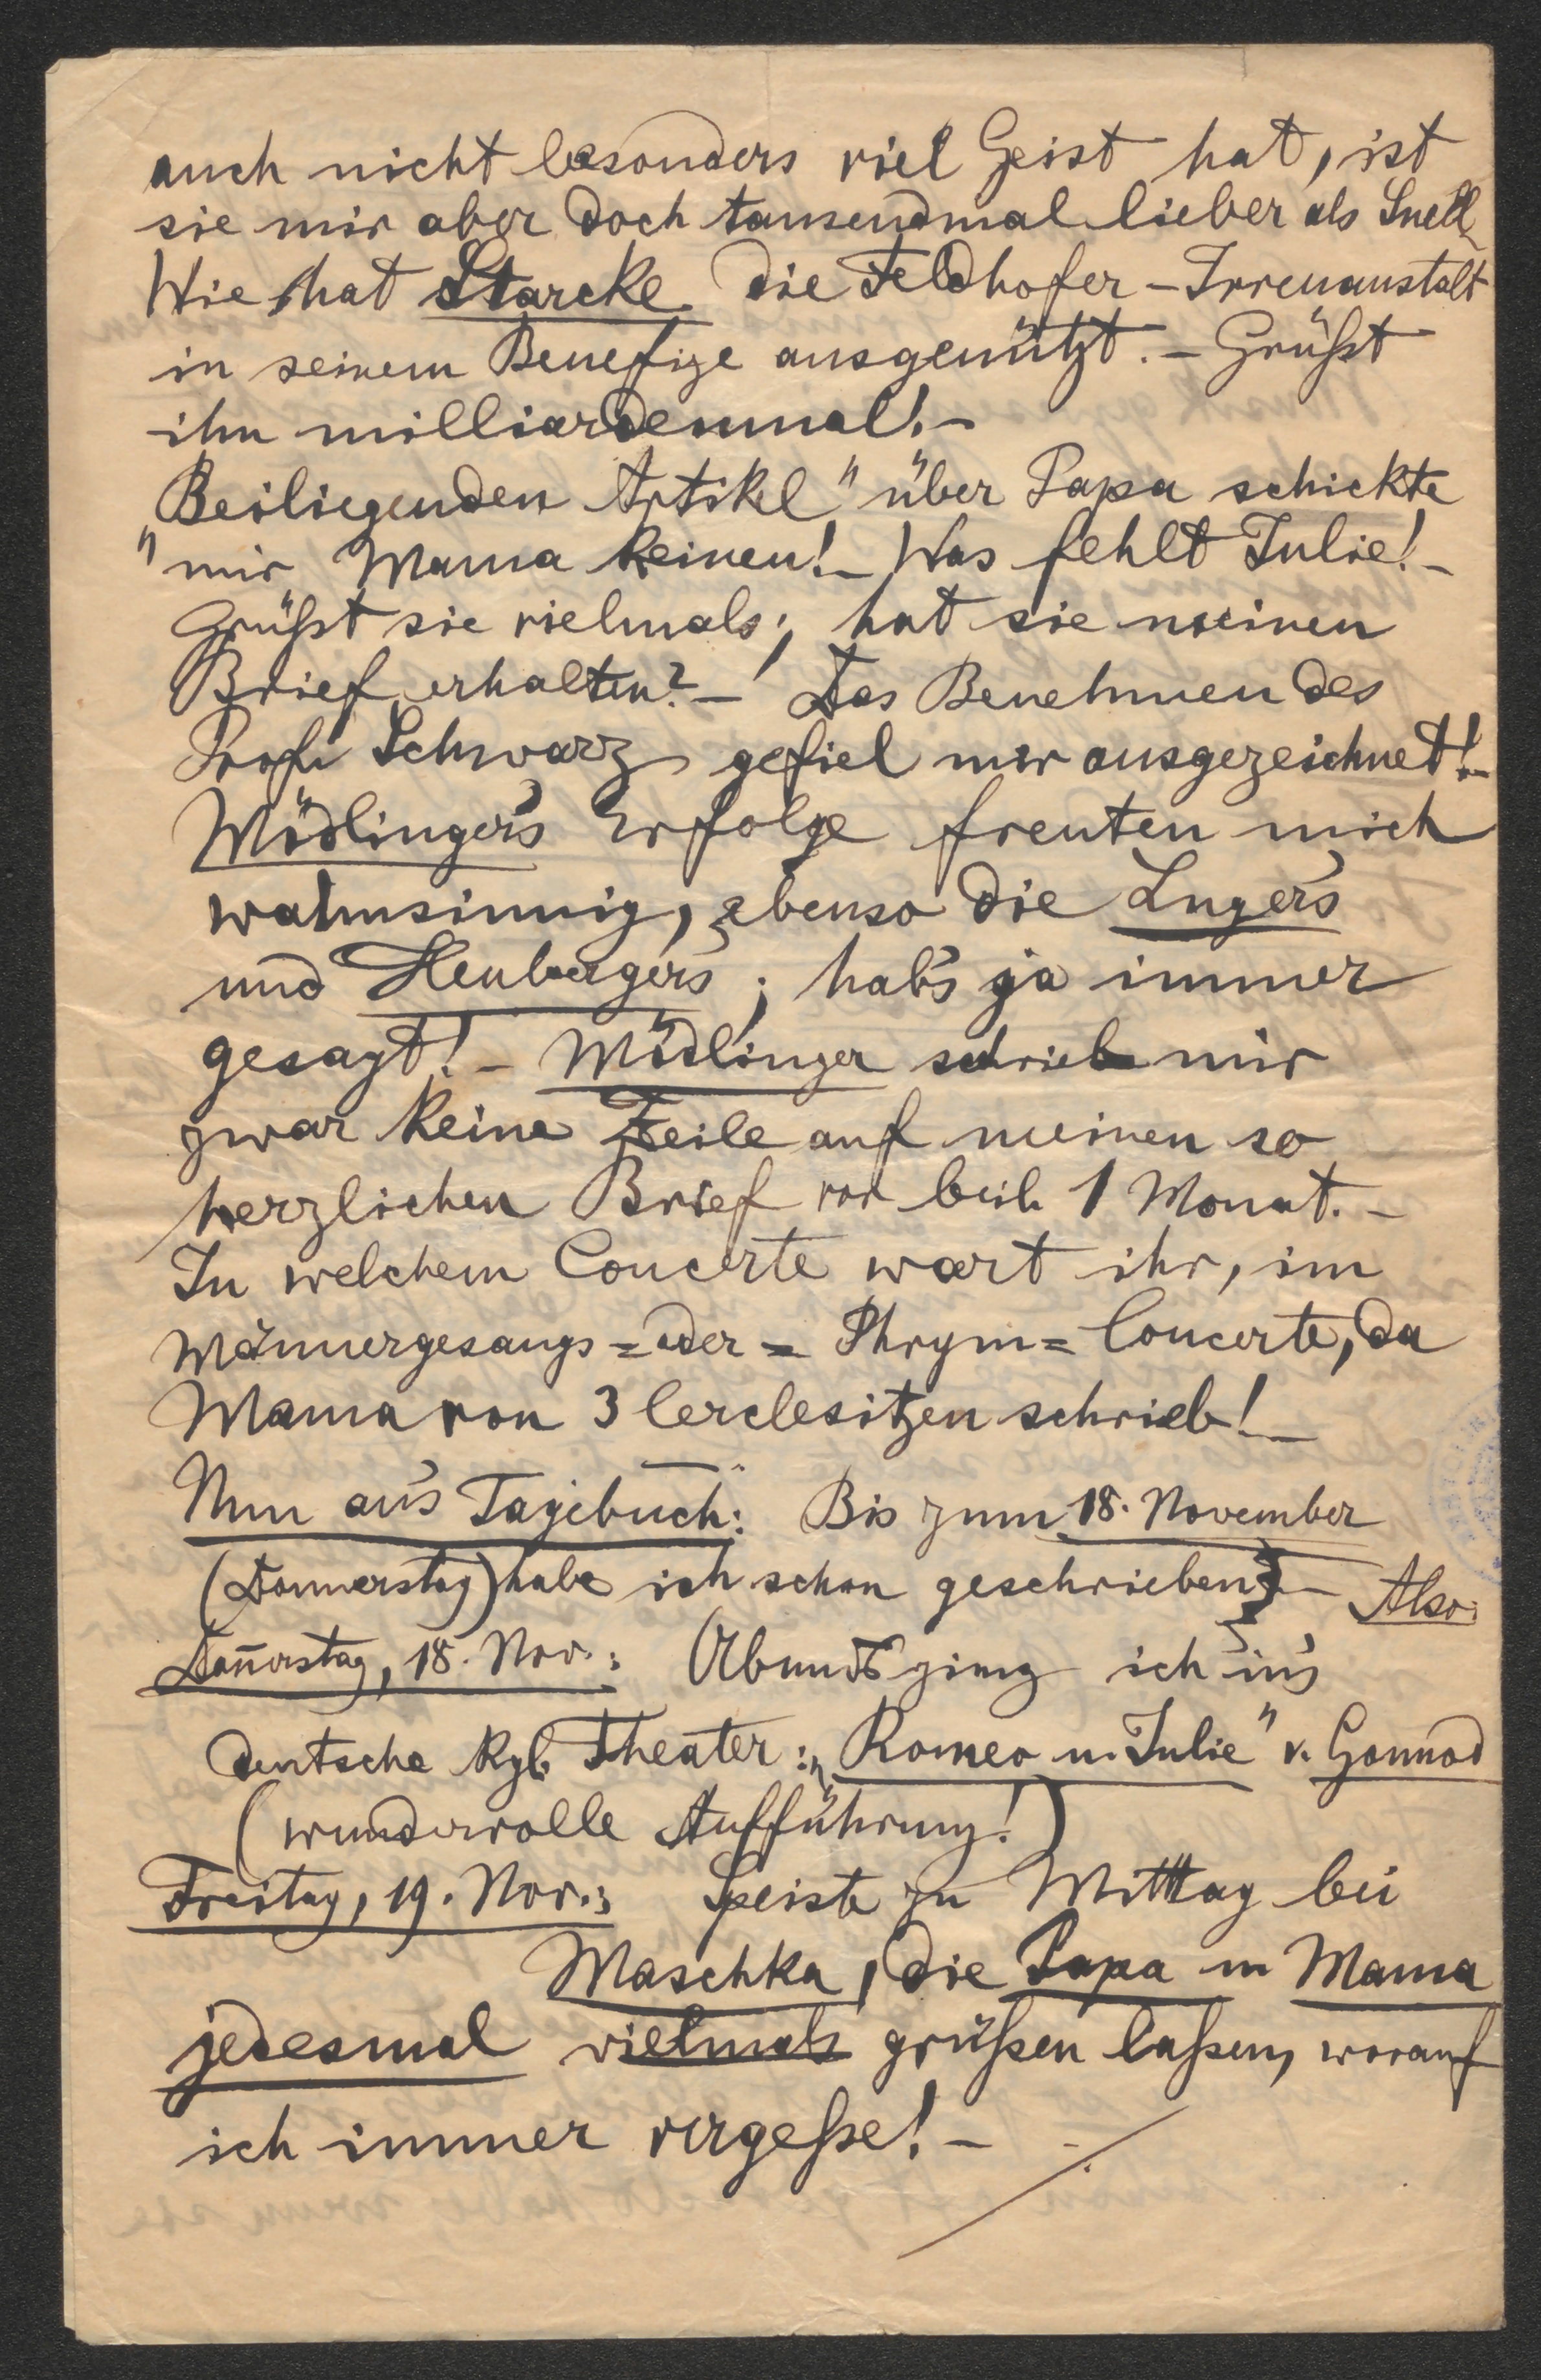 auch nicht besonders viel Geist hat, ist
sie mir aber doch tausendmal lieber als Snell
Wie hat Starcke die Feldhofer-Irrenanstalt
in seinem Benefize ausgenützt. – Grüßt
ihn milliardenmal! –
„Beiliegenden Artikel" über Papa schickte
mir Mama keinen! – Was fehlt Julie! –
Grüßt sie vielmals; hat sie meinen
Brief erhalten? – Das Benehmen des
Prof. Schwarz gefiel mir ausgezeichnet! –
Mödlinger's Erfolge freuten mich
wahnsinnig, ebenso die Luger's
und Heuberger's; hab's ja immer
gesagt! – Mödlinger schrieb mir
zwar keine Zeile auf meinen so
herzlichen Brief vor beil. 1 Monat. –
In welchem Concerte wart ihr, im
Männergesangs=oder= Thrym=Concerte, da
Mama von 3 Cerclesitzen schrieb! –
Nun an's Tagebuch: Bis zum 18. November
(Donnerstag) habe ich schon geschrieben. – Also:
Don̄erstag, 18. Nov.: Abends ging ich in's
deutsche kgl. Theater: „Romeo u. Julie" v. Gounod
(wundervolle Aufführung!)
Freitag, 19. Nov.: Speiste zu Mittag bei
Maschka, die Papa u Mama
jedesmal vielmals grüßen laßen, worauf
ich immer vergeße! – ./.